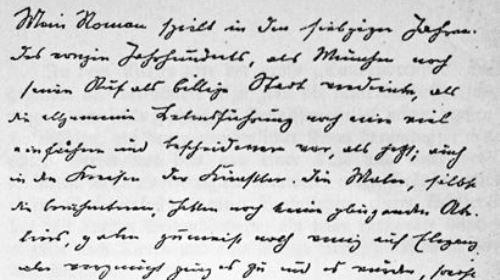 Mein Roman spielt in den siebziger Jahren
des vorigen Jahrhunderts, als München noch
seinen Ruf als billige Stadt verdiente, als
die allgemeine Lebensführung noch eine viel
einfachere und bescheidenere war, als jetzt; auch
in den Kreisen der Künstler. Die Maler, selbst
die berühmteren, hatten noch keine glänzenden Ate-
liers, gaben zumeist noch wenig auf Eleganz
aber vergnügt ging es zu und es wurde,